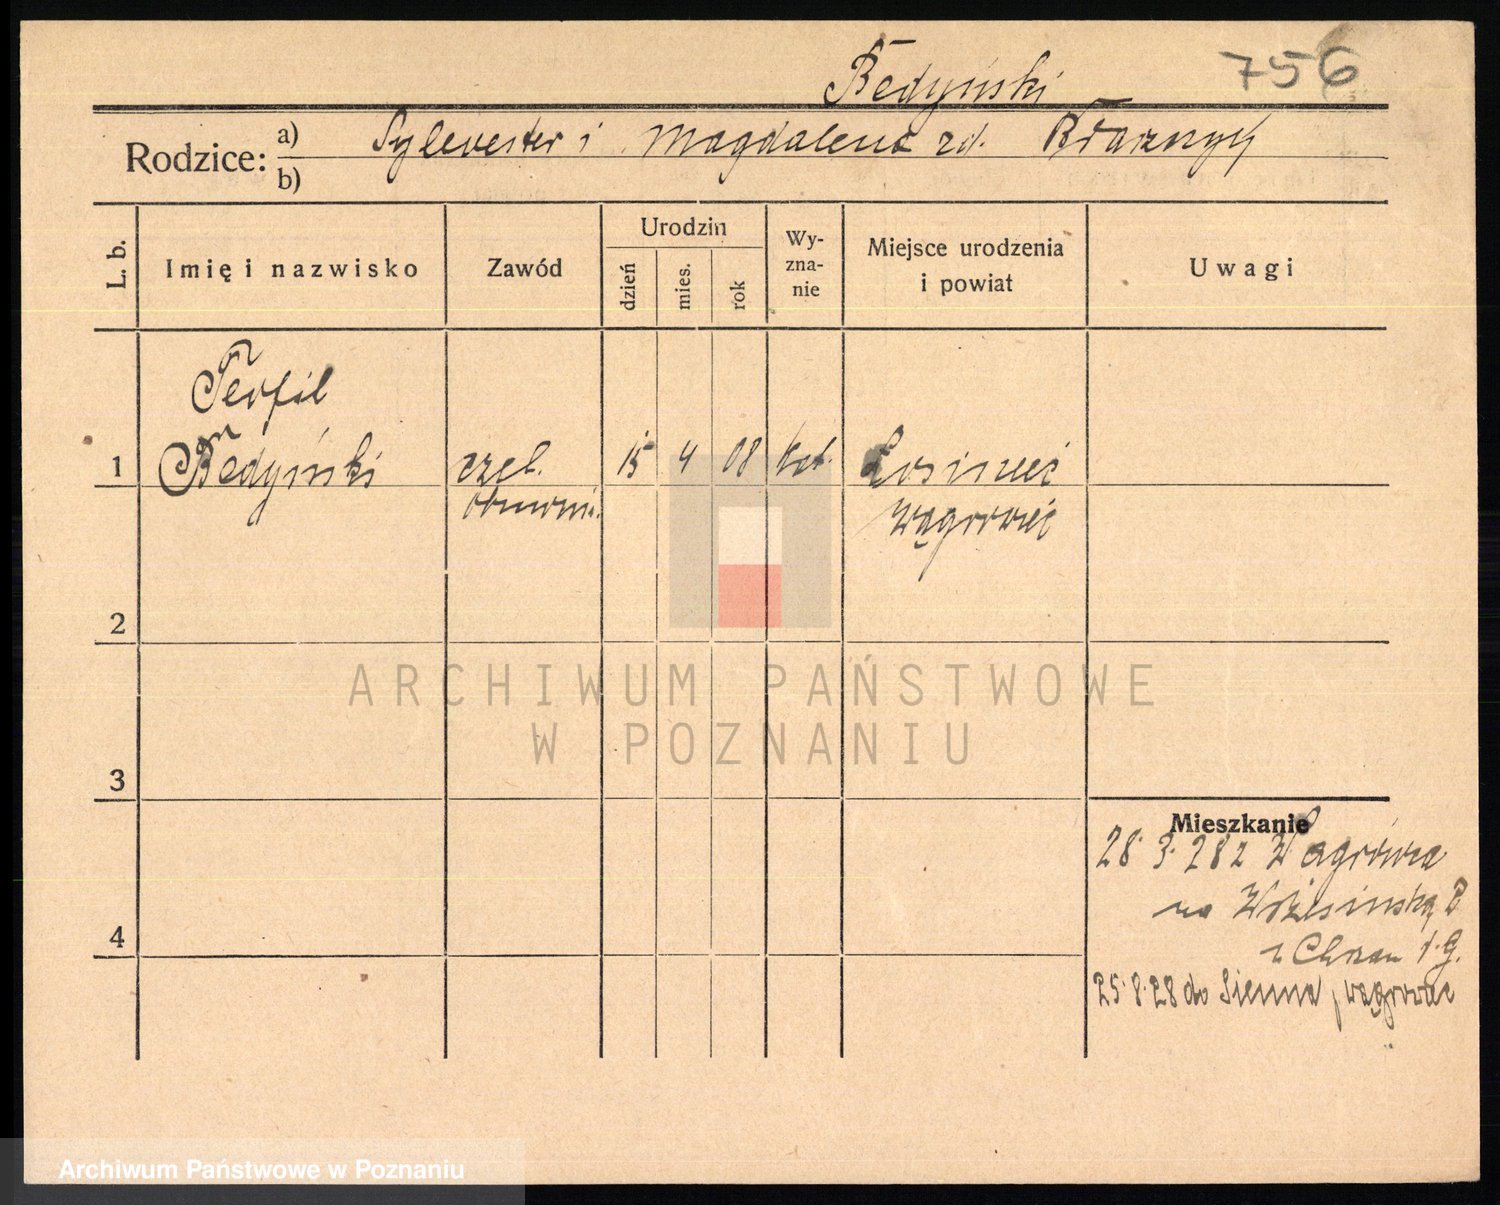 Bedyński 756
Rodzice: a) Sylwester i Magdalena zd.
b)
L. b.
Imię i nazwisko
Zawód
Urodzin
dzień
mies.
rok
Wy-
zna-
nie
Miejsce urodzenia
i powiat
Uwagi
Teofil
1 Bedyński czel. 15 4 08 kat. Łosiniec
Wągrowiec
2
3
4
Mieszkanie
28.3.28 z Wągrówca
na Wrzesińską
25.8.28 do Sienna, Wągrowiec
ARCHIWUM PAŃSTWOWE
W POZNANIU
Archiwum Państwowe w Poznaniu